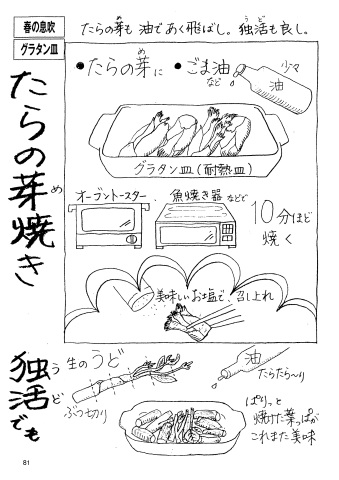 春の息吹
グラタン皿
たらの芽焼き
め
たらの芽も油であく飛ばし。独活も良し。
め
うど
●たらの芽に
め
●ごま油
など
少々
油
グラタン皿(耐熱皿)
オーブントースター
魚焼き器などで
10分ほど
焼く
美味しいお塩で、召し上れ
独活でも
うど
生のうど
ぶつ切り
油
たらたら〜り
ぱりっと
焼けた葉っぱが
これまた美味
81